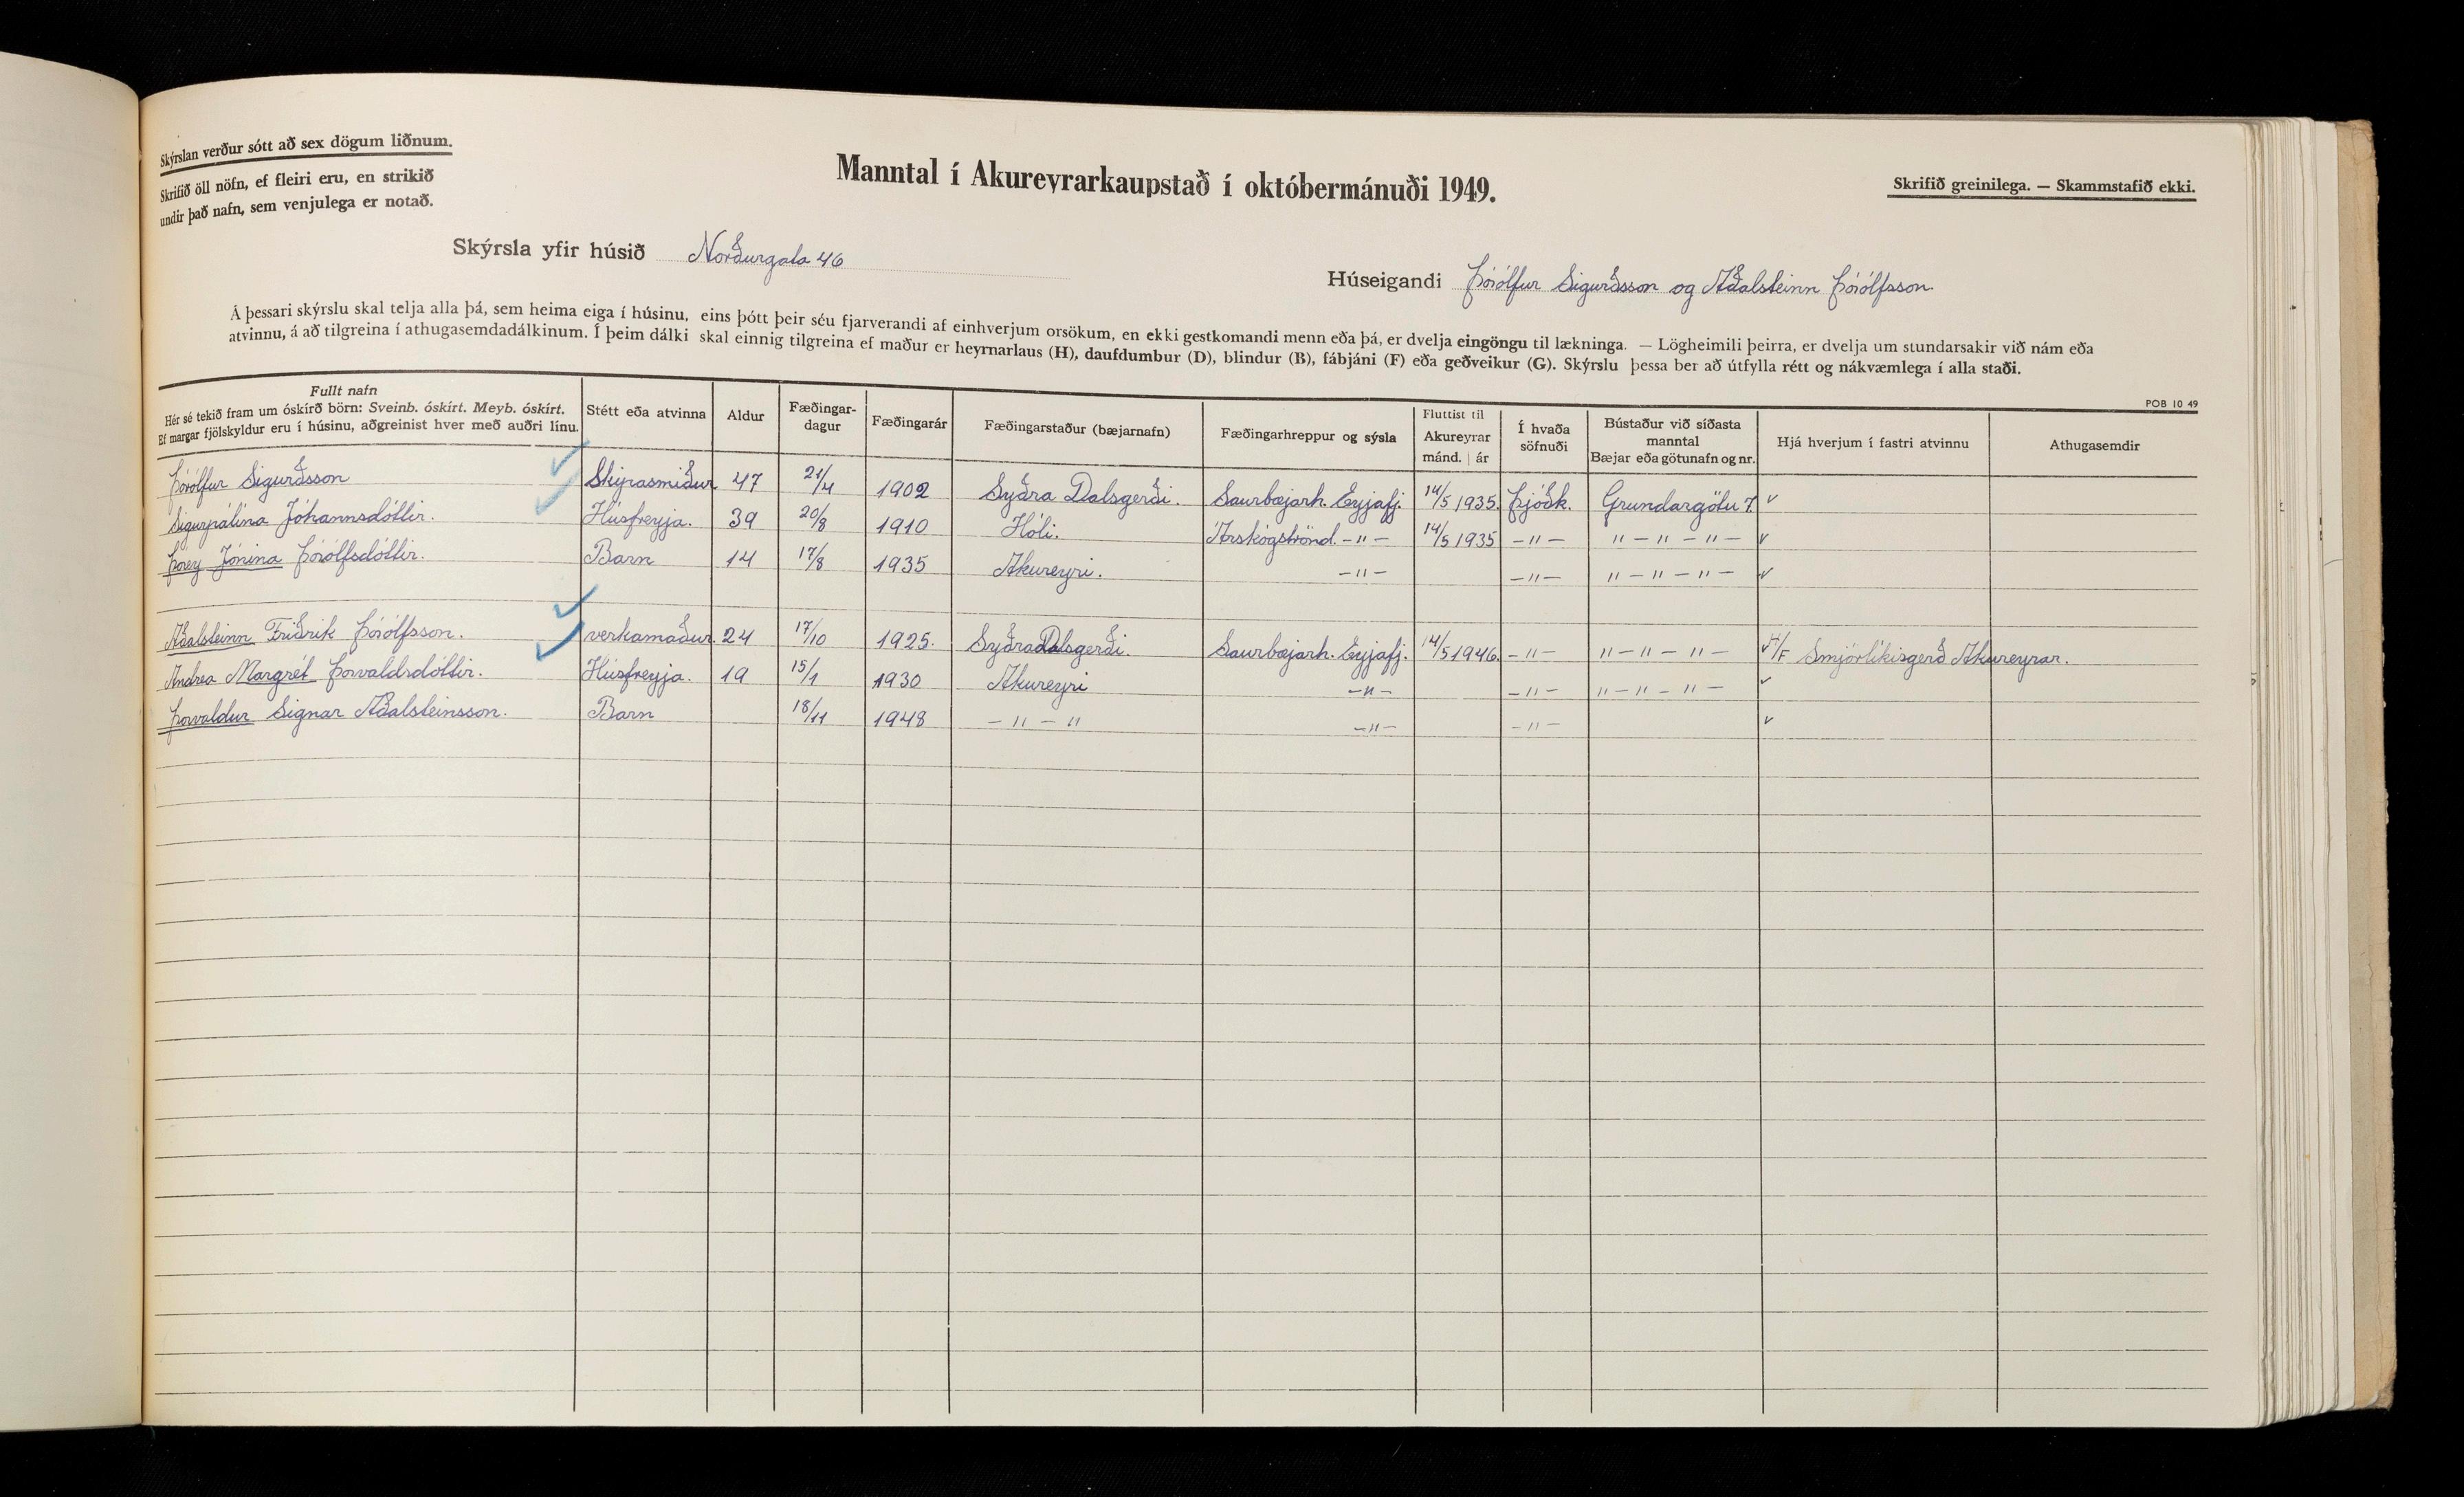 Skýrslan verður sótt að sex dögum liðnum.
Skrifið öll nöfn, ef fleiri eru, en strikið
undir það nafn, sem venjulega er notað.
Manntal í Akureyrarkaupstað í októbermánuði 1949.
Skrifið greinilega. — Skammstafið ekki.
Skýrsla yfir húsið Norðurgata 46
Húseigandi Þórólfur Sigurðsson og Aðalsteinn Þórólfsson
Á þessari skýrslu skal telja alla þá, sem heima eiga í húsinu, eins þótt þeir séu fjarverandi af einhverjum orsökum, en ekki gestkomandi menn eða þá, er dvelja eingöngu til lækninga. — Lögheimili þeirra, er dvelja um stundarsakir við nám eða
atvinnu, á að tilgreina í athugasemdadálkinum. Í þeim dálki skal einnig tilgreina ef maður er heyrnarlaus (H), daufdumbur (D), blindur (B), fábjáni (F) eða geðveikur (G). Skýrslu þessa ber að útfylla rétt og nákvæmlega í alla staði.
POB 10 49
Fullt nafn
Hér sé tekið fram um óskírð börn: Sveinb. óskírt. Meyb. óskírt.
Ef margar fjölskyldur eru í húsinu, aðgreinist hver með auðri línu.
Stétt eða atvinna
Aldur
Fæðingar-
dagur
Fæðingarár
Fæðingarstaður (bæjarnafn)
Fæðingarhreppur og sýsla
Fluttist til
Akureyrar
mánd. | ár
Í hvaða
söfnuði
Bústaður við síðasta
manntal
Bæjar eða götunafn og nr.
Hjá hverjum í fastri atvinnu
Athugasemdir
Þórólfur Sigurðsson Skipasmiður 47 21/4 1902 Syðra Dalsgerði. Saurbæjarh. Eyjafj. 14/5 1935. Þjóðk. Grundargötu 7
Sigurpálína Jóhannsdóttir. Húsfreyja. 39 20/8 1910 Hóli. Árskógströnd. -"- 14/5 1935 -"- "-"-"-
Þórey Jónína Þórólfsdóttir. Barn 14 17/8 1935 Akureyri. -"- -"- "-"-"-
Aðalsteinn Friðrik Þórólfsson. verkamaður. 24 17/10 1925. Syðra Dalsgerði. Saurbæjarh. Eyjafj. 14/5 1946. -"- "-"-"- H/F Smjörlíkisgerð Akureyrar.
Andrea Margrét Þorvaldsdóttir. Húsfreyja. 19 15/1 1930 Akureyri -"- -"- "-"-"-
Þorvaldur Signar Aðalsteinsson. Barn 18/11 1948 -"-" -"- -"-